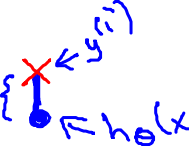 y⁽ⁱ⁾
h_θ(x